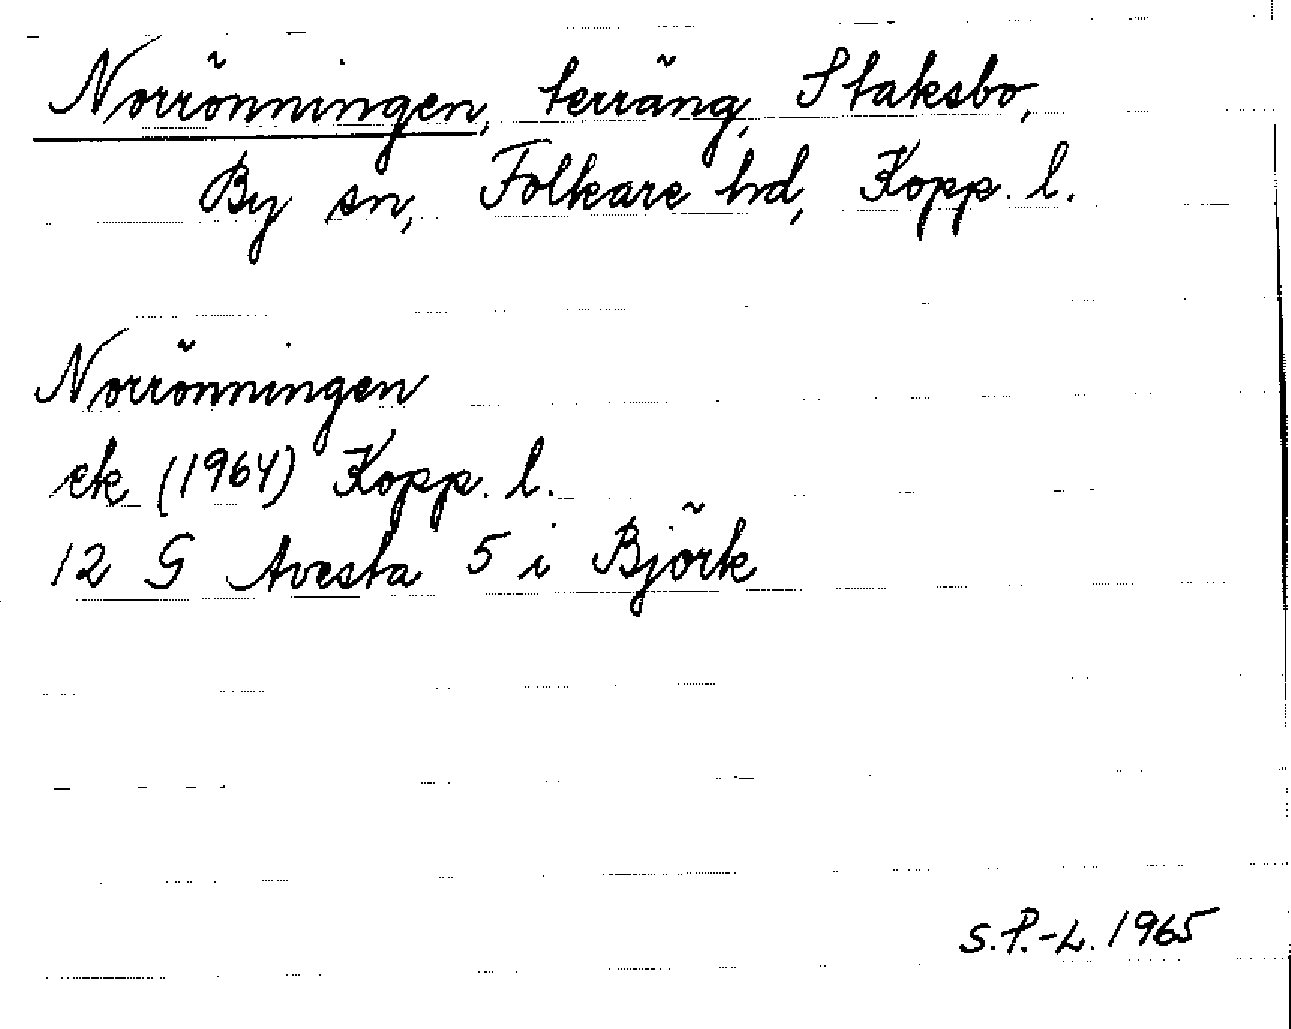 Norrönningen, terräng, Staksbo,
By sn, Folkare hd, Kopp. l.
Norrönningen
ek (1964) Kopp. l.
12 G Avesta 5 i Björk
S.P.-L. 1965